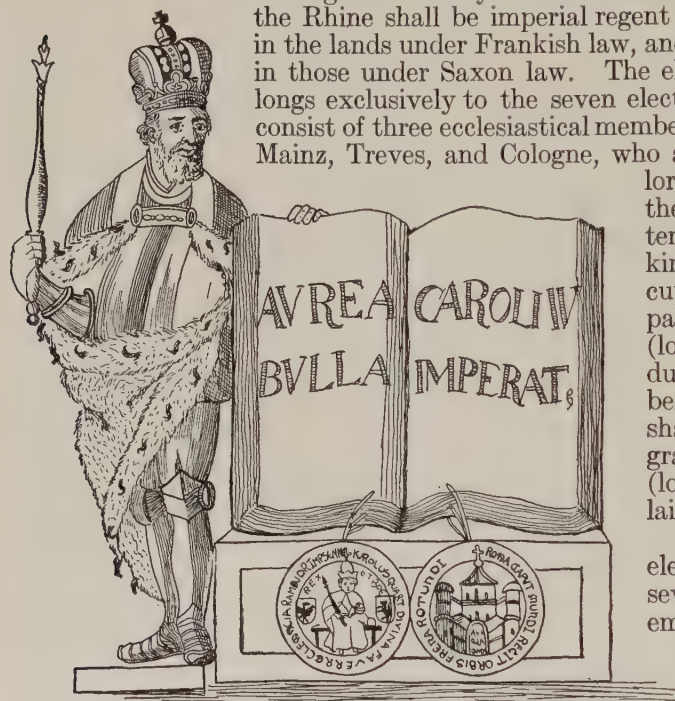 the Rhine shall be imperial regent
in the lands under Frankish law, and
in those under Saxon law. The el
longs exclusively to the seven elect
consist of three ecclesiastical membe
Mainz, Treves, and Cologne, who a
lor
the
ter
kin
cu
pa
(lo
du
be
sha
gra
(lo
lai
ele
sev
em
AVREA CAROLI IV
BVLLA IMPERAT,
KAROLUS QUART DIVINA FAVE
REX ET
ROMA CAPUT MUNDI REGIT ORBIS FRENA ROTUNDI